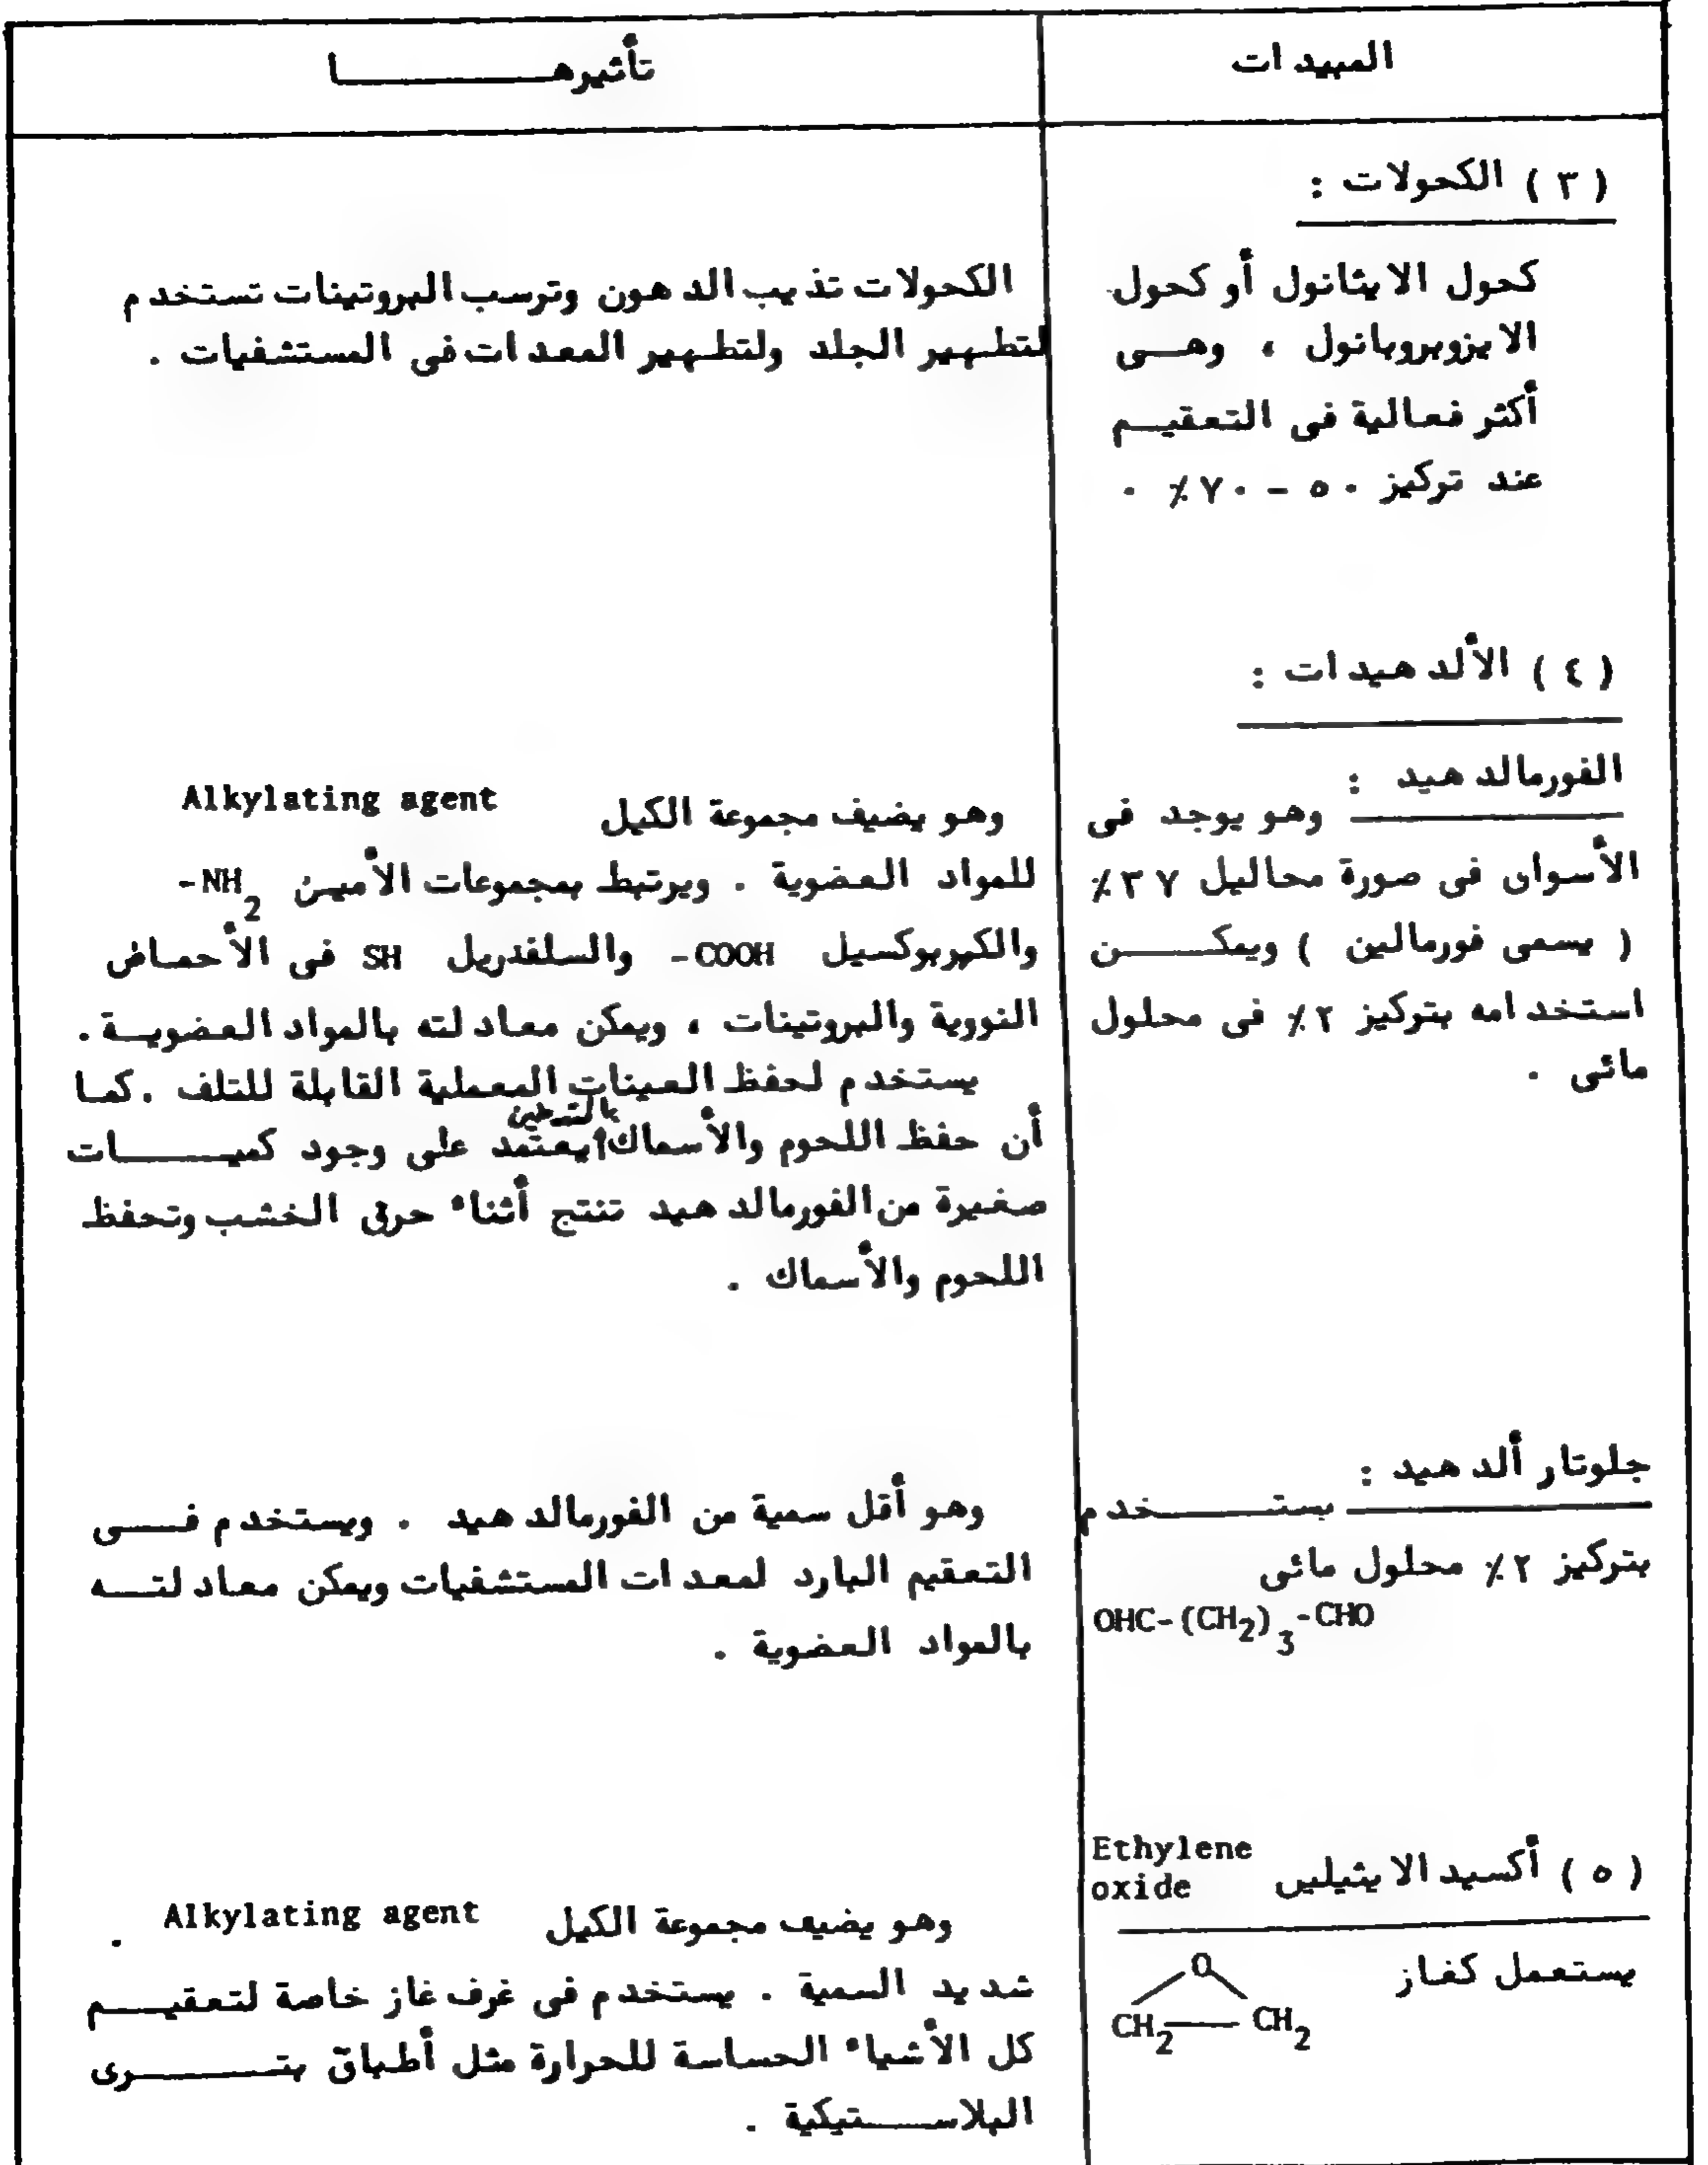 المبيدات
تأثيرها
( ٣ ) الكحولات :
كحول الايثانول أو كحول
الايزوبروبانول ، وهى
أكثر فعالية فى التعقيم
عند تركيز ٥٠ - ٧٠٪ .
الكحولات تذيب الدهون وترسب البروتينات تستخدم
لتطهير الجلد ولتطهير المعدات فى المستشفيات .
( ٤ ) الألدهيدات :
الفورمالدهيد :
وهو يوجد فى
الأسواق فى صورة محاليل ٣٧٪
( يسمى فورمالين ) ويمكن
استخدامه بتركيز ٢٪ فى محلول
مائى .
وهو يضيف مجموعة الكيل Alkylating agent
للمواد العضوية . ويرتبط بمجموعات الأمين -NH2
والكهربوكسيل -COOH والسلفدريل SH فى الأحماض
النووية والبروتينات ، ويمكن معادلته بالمواد العضوية .
يستخدم لحفظ العينات المعملية القابلة للتلف . كما
أن حفظ اللحوم والأسماك بالتدخين يعتمد على وجود كميات
صغيرة من الفورمالدهيد تنتج أثناء حرق الخشب وتحفظ
اللحوم والأسماك .
جلوتار ألدهيد :
يستخدم
بتركيز ٢٪ محلول مائى
OHC-(CH2)3-CHO
وهو أقل سمية من الفورمالدهيد . ويستخدم فى
التعقيم البارد لمعدات المستشفيات ويمكن معادلته
بالمواد العضوية .
( ٥ ) أكسيد الايثيلين Ethylene
oxide
يستعمل كغاز
O
CH2 — CH2
وهو يضيف مجموعة الكيل Alkylating agent .
شديد السمية . يستخدم فى غرف غاز خاصة لتعقيم
كل الأشياء الحساسة للحرارة مثل أطباق بترى
البلاستيكية .